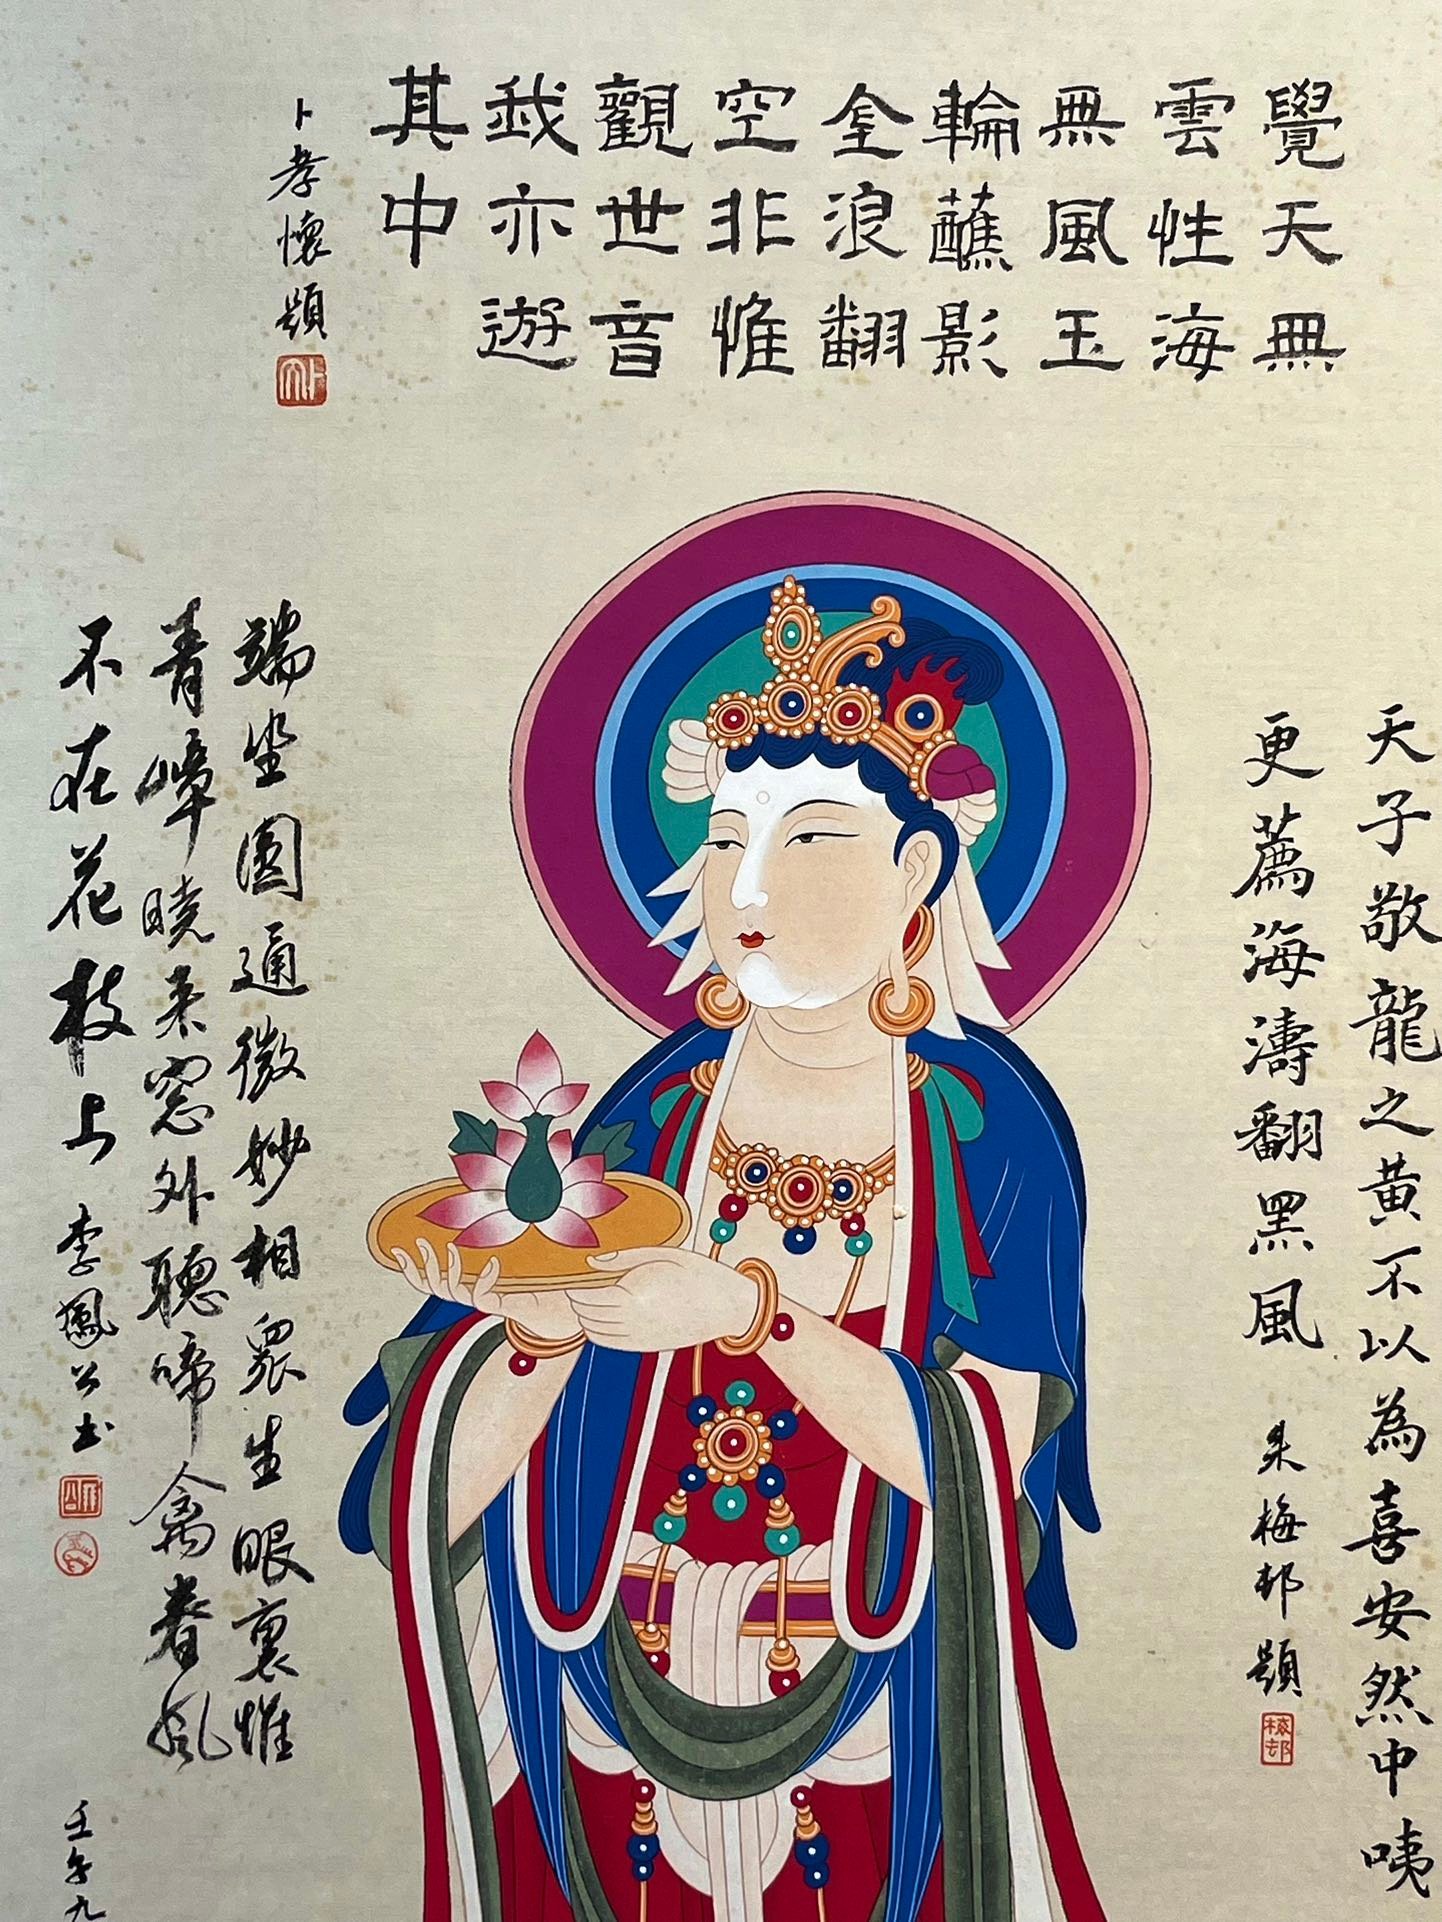 覺天無
雲性海
無風玉
輪蘸影
全浪翻
空非惟
觀世音
我亦遊
其中
卜孝懷題
天子敬龍之黃不以為喜安然中咦
更薦海濤翻黑風
朱梅邨題
梅邨
端坐圓通微妙相眾生眼裏惟
青嶂曉來窓外聽啼禽春風
不在花枝上
李鳳公書
壬午九